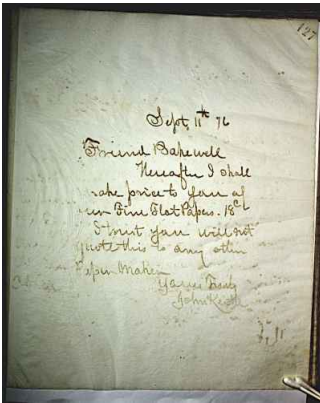 127
Sept, 11th 76
Friend Bakewell
Hereafter I shall
make price to you of
our Fine Flat Papers. 18c
I trust you will not
quote this to any other
Paper Maker
Yours Truly
John Keith